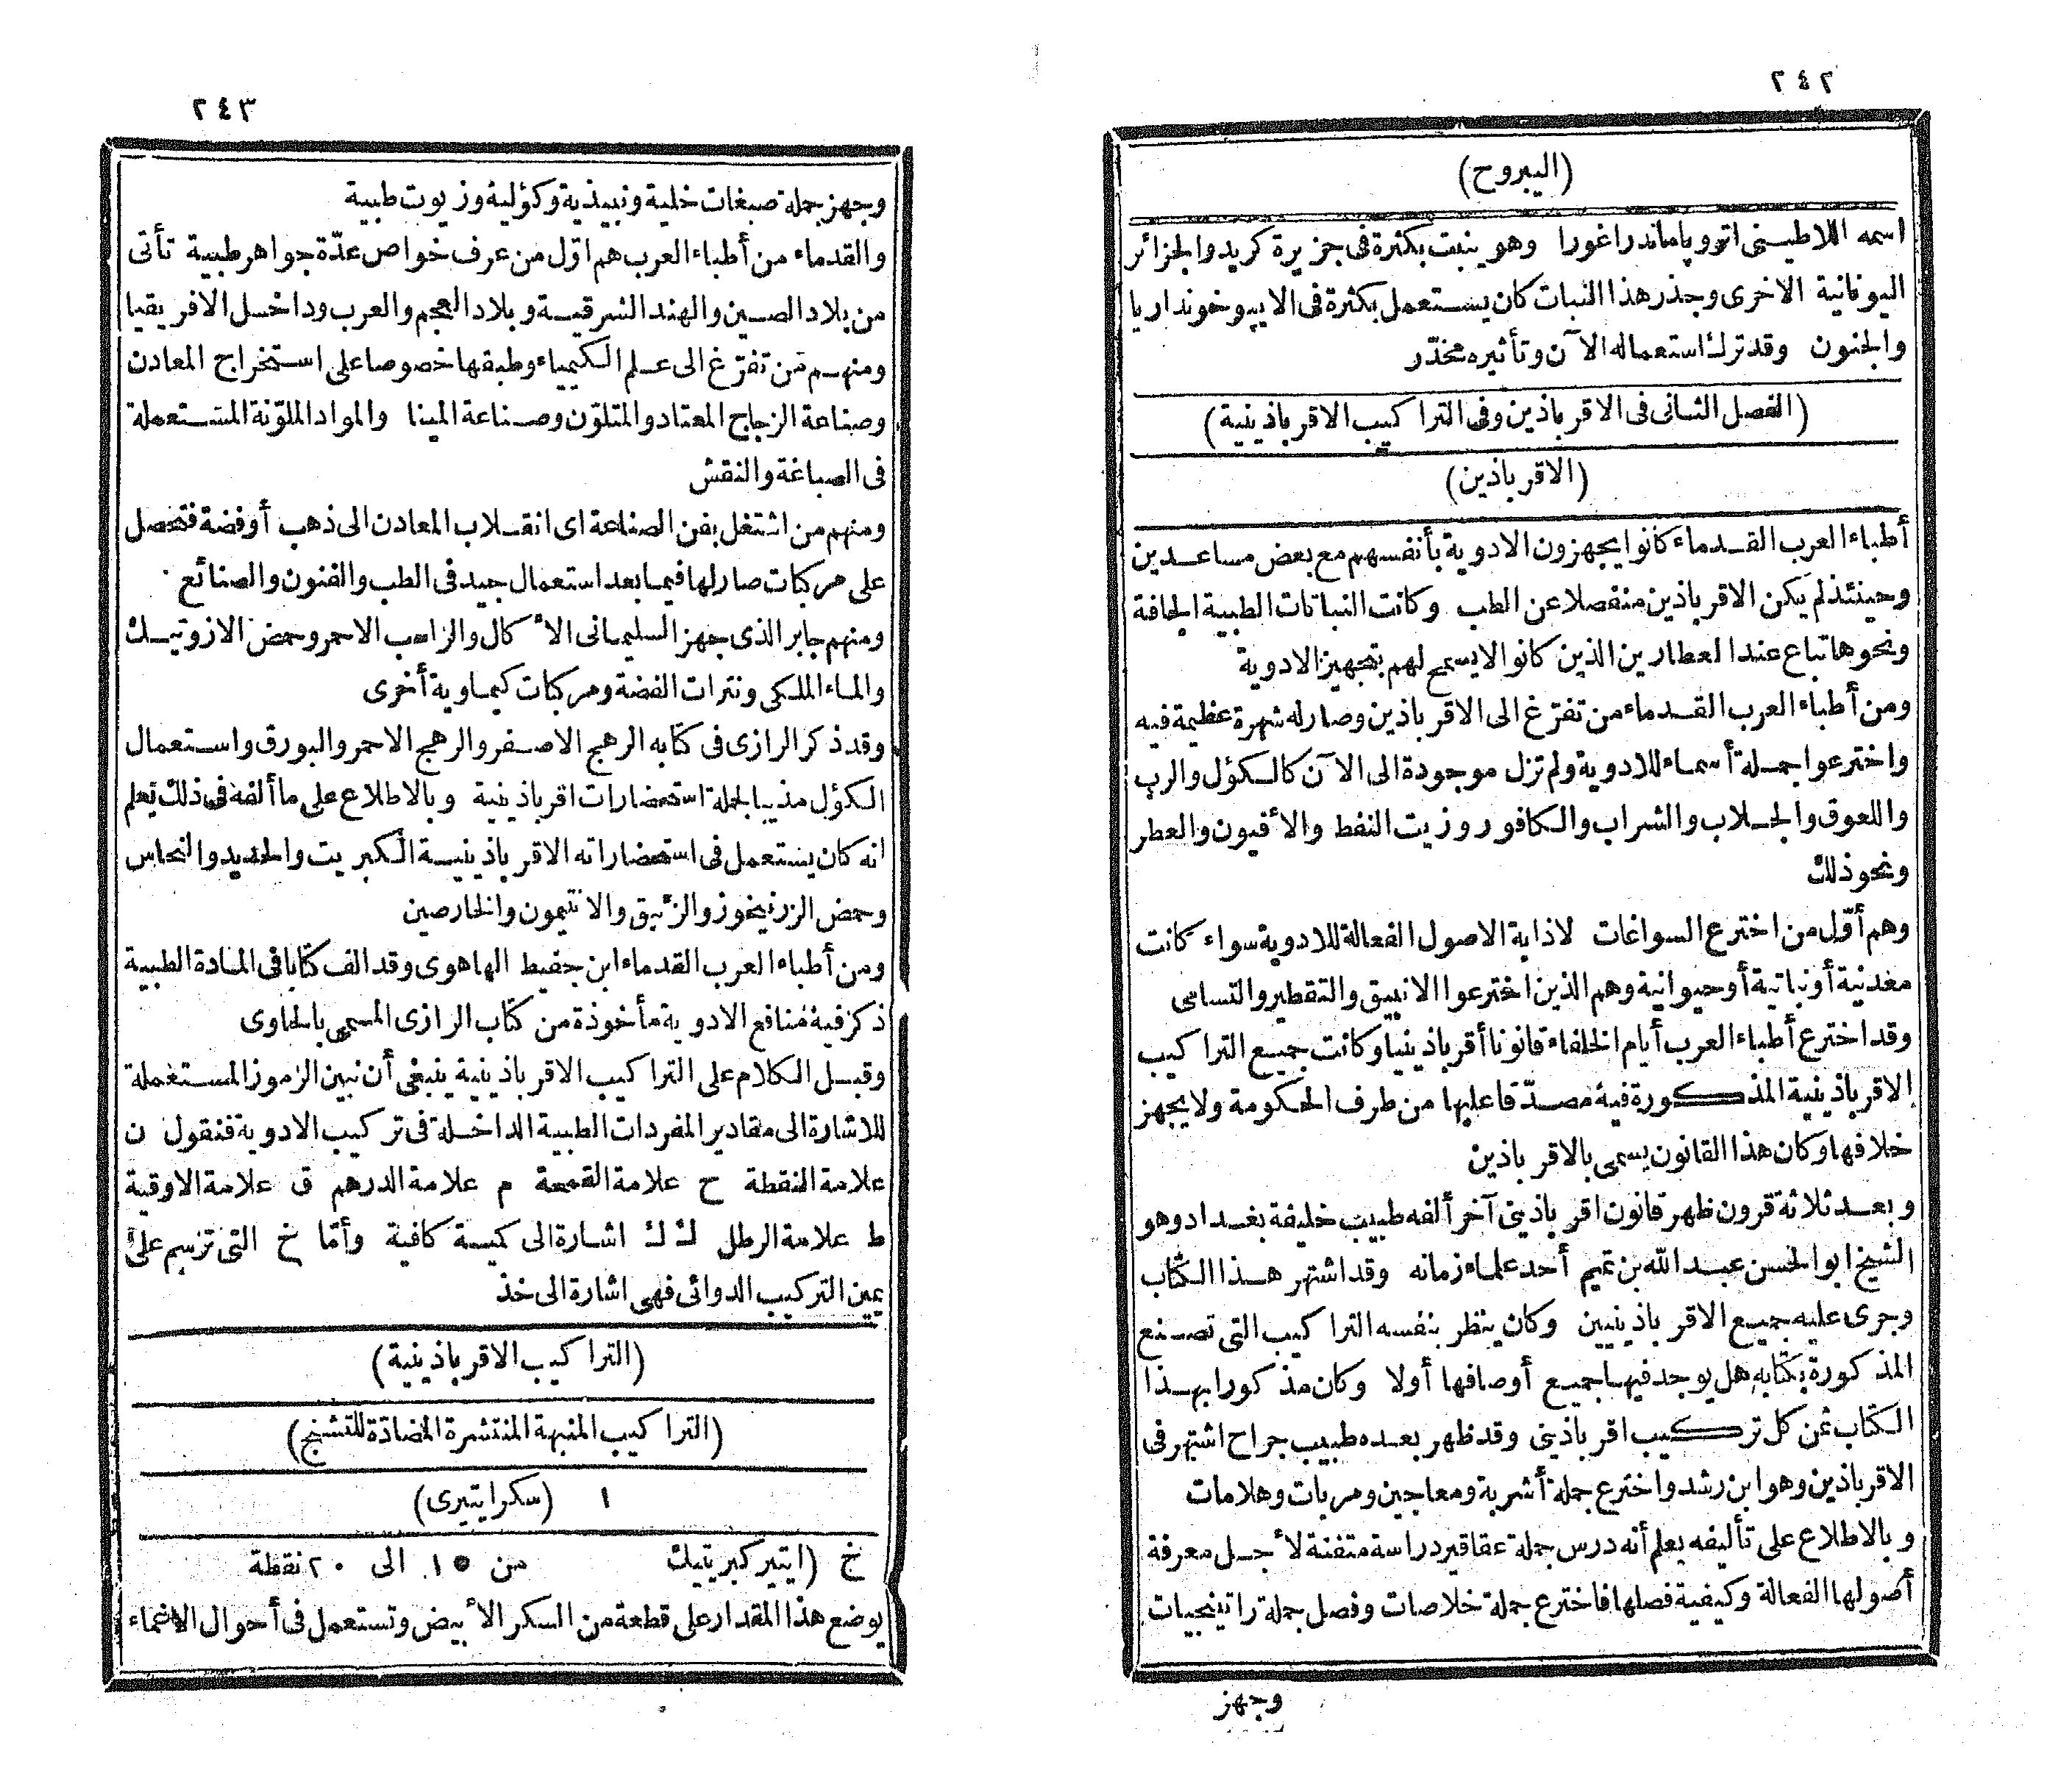 ٢٤٢
(اليبروح)
اسمه اللاطيني اتروپاماندراغورا وهو ينبت بكثرة في جزيرة كريد والجزائر
اليونانية الاخرى وجذر هذا النبات كان يستعمل بكثرة في الايپوخونداريا
والجنون وقد ترك استعماله الآن وتأثيره مخدّر
(الفصل الثاني في الاقرباذين وفي التراكيب الاقرباذينية)
(الاقرباذين)
أطباء العرب القدماء كانوا يجهزون الادوية بأنفسهم مع بعض مساعدين
وحينئذ لم يكن الاقرباذين منفصلا عن الطب وكانت النباتات الطبية الجافة
ونحوها تباع عند العطارين الذين كانوا لا يسمح لهم بتجهيز الادوية
ومن أطباء العرب القدماء من تفرّغ الى الاقرباذين وصار له شهرة عظيمة فيه
واخترعوا جملة أسماء للادوية ولم تزل موجودة الى الآن كالكؤل والرب
واللعوق والجلاب والشراب والكافور وزيت النفط والأفيون والعطر
ونحو ذلك
وهم أوّل من اخترع السواغات لاذابة الاصول الفعالة للادوية سواء كانت
معدنية أو نباتية أو حيوانية وهم الذين اخترعوا الانبيق والتقطير والتسامي
وقد اخترع أطباء العرب أيام الخلفاء قانونا أقرباذينيا وكانت جميع التراكيب
الاقرباذينية المذكورة فيه مصدّقا عليها من طرف الحكومة ولا يجهز
خلافها وكان هذا القانون يسمى بالاقرباذين
وبعد ثلاثة قرون ظهر قانون اقرباذيني آخر ألفه طبيب خليفة بغداد وهو
الشيخ ابو الحسن عبد الله بن تميم أحد علماء زمانه وقد اشتهر هذا الكتاب
وجرى عليه جميع الاقرباذينيين وكان ينظر بنفسه التراكيب التي تصنع
المذكورة بكتابه هل يوجد فيها جميع أوصافها أولا وكان مذكورا بهذا
الكتاب ثمن كل تركيب اقرباذيني وقد ظهر بعده طبيب جراح اشتهر في
الاقرباذين وهو ابن رشد واخترع جملة أشربة ومعاجين ومربات وهلامات
وبالاطلاع على تأليفه يعلم أنه درس جملة عقاقير دراسة متقنة لأجل معرفة
أصولها الفعالة وكيفية فصلها فاخترع جملة خلاصات وفصل جملة راتينجيات
وجهز
٢٤٣
وجهز جملة صبغات خلية ونبيذية وكؤلية وزيوت طبية
والقدماء من أطباء العرب هم اوّل من عرف خواص عدّة جواهر طبية تأتى
من بلاد الصين والهند الشرقية وبلاد العجم والعرب وداخل الافريقيا
ومنهم من تفرّغ الى علم الكيمياء وطبقها خصوصا على استخراج المعادن
وصناعة الزجاج المعتاد والمتلوّن وصناعة المينا والمواد الملوّنة المستعملة
في الصباغة والنقش
ومنهم من اشتغل بفن الصناعة اى انقلاب المعادن الى ذهب أو فضة فتحصل
على مركبات صار لها فيما بعد استعمال جيد في الطب والفنون والصنائع
ومنهم جابر الذى جهز السليمانى الأكال والراسب الاحمر وحمض الازوتيك
والماء الملكى ونترات الفضة ومركبات كيماوية أخرى
وقد ذكر الرازى في كتابه الرهج الاصفر والرهج الاحمر والبورق واستعمال
الكؤل مذيبا لجملة استحضارات اقرباذينية وبالاطلاع على ما ألفه في ذلك يعلم
انه كان يستعمل في استحضاراته الاقرباذينية الكبريت والحديد والنحاس
وحمض الزرنيخوز والزئبق والانتيمون والخارصين
ومن أطباء العرب القدماء ابن حفيط الهاهوى وقد الف كتابا في المادة الطبية
ذكر فيه منافع الادوية مأخوذة من كتاب الرازى المسمى بالحاوى
وقبل الكلام على التراكيب الاقرباذينية ينبغى أن نبين الرموز المستعملة
للاشارة الى مقادير المفردات الطبية الداخلة في تركيب الادوية فنقول ن
علامة النقطة ح علامة القمحة م علامة الدرهم ق علامة الاوقية
ط علامة الرطل ك ك اشارة الى كمية كافية وأمّا خ التى ترسم على
يمين التركيب الدوائى فهى اشارة الى خذ
(التراكيب الاقرباذينية)
(التراكيب المنبهة المنتشرة المضادّة للتشنج)
١ (سكر ايتيرى)
خ (ايتير كبريتيك من ١٥ الى ٢٠ نقطة
يوضع هذا المقدار على قطعة من السكر الأبيض وتستعمل في أحوال الاغماء